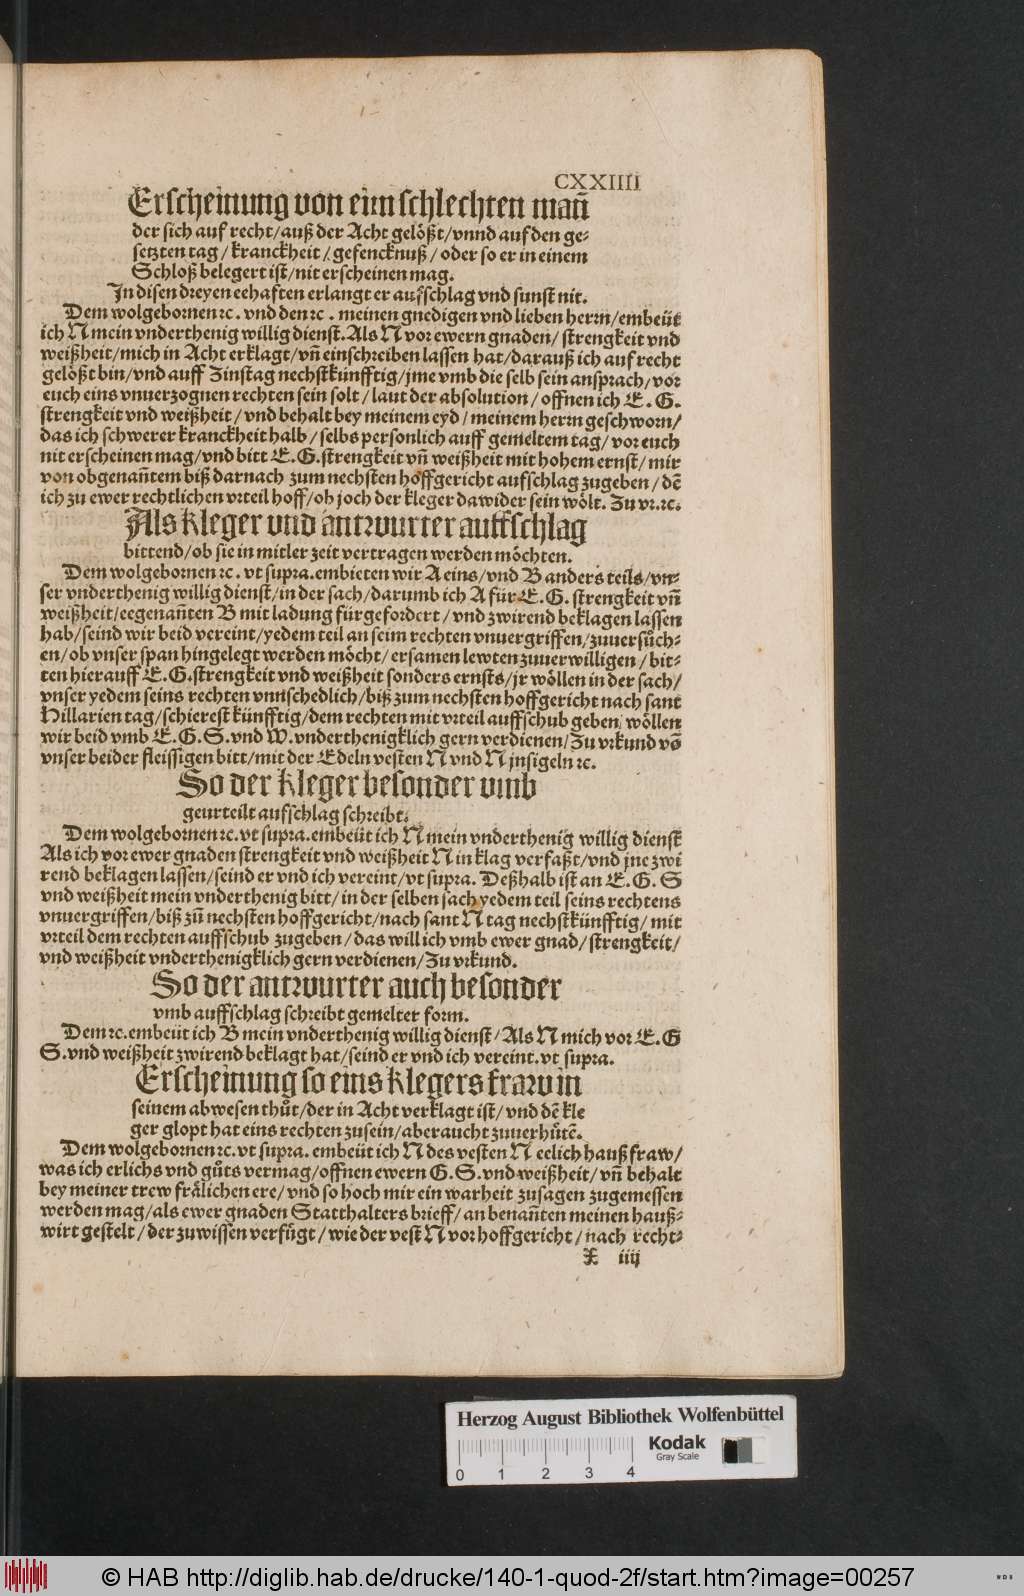 CXXIIII
Erscheinung von eim schlechten mañ
der sich auf recht/auß der Acht gelößt/vnnd auf den ge-
setzten tag/kranckheit/gefencknuß/oder so er in einem
Schloß belegert ist/nit erscheinen mag.
In disen dreyen eehaften erlangt er aufschlag vnd sunst nit.
Dem wolgebornen ꝛc. vnd den ꝛc. meinen gnedigen vnd lieben herrn/embeüt
ich N mein vnderthenig willig dienst. Als N vor ewern gnaden/strengkeit vnd
weißheit/mich in Acht erklagt/vñ einschreiben lassen hat/darauß ich auf recht
gelößt bin/vnd auff Zinstag nechstkünfftig/jme vmb die selb sein ansprach/vor
euch eins vnuerzognen rechten sein solt/laut der absolution/offnen ich E.G.
strengkeit vnd weißheit/vnd behalt bey meinem eyd/meinem herrn geschworn/
das ich schwerer kranckheit halb/selbs personlich auff gemeltem tag/vor euch
nit erscheinen mag/vnd bitt E.G. strengkeit vñ weißheit mit hohem ernst/mir
von obgenañtem biß darnach zum nechsten hoffgericht aufschlag zugeben/dẽ
ich zu ewer rechtlichen vrteil hoff/ob joch der kleger dawider sein wölt. Zu vr.ꝛc.
Als kleger vnd antwurter auffschlag
bittend/ob sie in mitler zeit vertragen werden möchten.
Dem wolgebornen ꝛc. vt supra. embieten wir A eins/vnd B anders teils/vn-
ser vnderthenig willig dienst/in der sach/darumb ich A für E.G. strengkeit vñ
weißheit/eegenañten B mit ladung fürgefordert/vnd zwirend beklagen lassen
hab/seind wir beid vereint/yedem teil an seim rechten vnuergriffen/zuuersůch-
en/ob vnser span hingelegt werden möcht/ersamen lewten zuuerwilligen/bit-
ten hierauff E.G. strengkeit vnd weißheit sonders ernsts/jr wöllen in der sach/
vnser yedem seins rechten vnnschedlich/biß zum nechsten hoffgericht nach sant
Hillarien tag/schierest künfftig/dem rechten mit vrteil auffschub geben/wöllen
wir beid vmb E.G.S. vnd W. vnderthenigklich gern verdienen/Zu vrkund võ
vnser beider fleissigen bitt/mit der Edeln vesten N vnd N jnsigeln ꝛc.
So der kleger besonder vmb
geurteilt aufschlag schreibt.
Dem wolgebornen ꝛc. vt supra. embeüt ich N mein vnderthenig willig dienst
Als ich vor ewer gnaden strengkeit vnd weißheit N in klag verfaßt/vnd jne zwi
rend beklagen lassen/seind er vnd ich vereint/vt supra. Deßhalb ist an E.G.S
vnd weißheit mein vnderthenig bitt/in der selben sach yedem teil seins rechtens
vnuergriffen/biß zů nechsten hoffgericht/nach sant N tag nechstkünfftig/mit
vrteil dem rechten auffschub zugeben/das will ich vmb ewer gnad/strengkeit/
vnd weißheit vnderthenigklich gern verdienen/Zu vrkund.
So der antwurter auch besonder
vmb auffschlag schreibt gemelter form.
Dem ꝛc. embeüt ich B mein vnderthenig willig dienst/Als N mich vor E.G
S. vnd weißheit zwirend beklagt hat/seind er vnd ich vereint. vt supra.
Erscheinung so eins klegers fraw in
seinem abwesen thůt/der in Acht verklagt ist/vnd dẽ kle
ger glopt hat eins rechten zusein/aberaucht zuuerhütẽ.
Dem wolgebornen ꝛc. vt supra. embeüt ich N des vesten N eelich hauß fraw/
was ich erlichs vnd gůts vermag/offnen ewern G.S. vnd weißheit/vñ behalt
bey meiner trew frälichen ere/vnd so hoch mir ein warheit zusagen zugemessen
werden mag/als ewer gnaden Statthalters brieff/an benañten meinen hauß-
wirt gestelt/der zuwissen verfügt/wie der vest N vor hoffgericht/nach recht-
X iiij
Herzog August Bibliothek Wolfenbüttel
Kodak
Gray Scale
0 1 2 3 4
© HAB http://diglib.hab.de/drucke/140-1-quod-2f/start.htm?image=00257